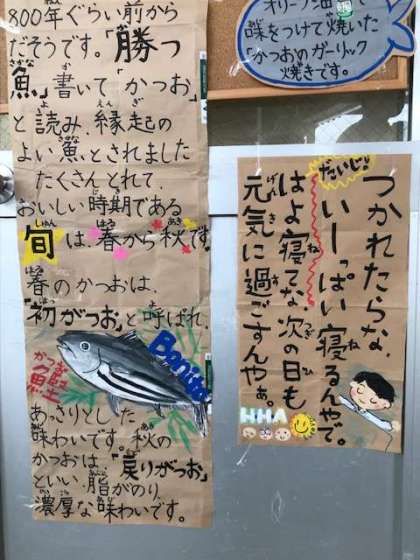 800年ぐらい前から
だそうです。「勝つ
魚」書いて「かつお」
と読み、縁起の
よい魚とされました
たくさんとれて、
おいしい時期である
旬は、春から秋です。
春のかつおは、
"初がつお"と呼ばれ、
Bonito
かつお
鰹
あっさりとした
味わいです。秋の
かつおは"戻りがつお"
といい、脂がのり、
濃厚な味わいです。
オリーブ油
味をつけて焼いた
「かつおのガーリック
焼きです。
だいじょぶ
つかれたらな、
いーっぱい寝るんやで。
はよ寝てな、次の日も
元気に過ごすんやぁ。
HHA